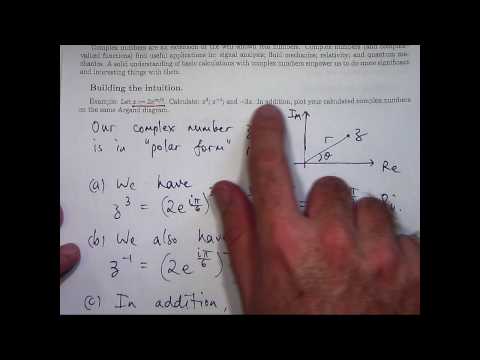 Complex numbers are an extension of the well known real numbers. Complex numbers (and complex-
valued functions) find useful applications in: signal analysis; fluid mechanics; relativity; and quantum me-
chanics. A solid understanding of basic calculations with complex numbers empower us to do more significant
and interesting things with them.
Building the intuition.
Example: Let z := 2e^{iπ/6}. Calculate: z³; z⁻¹; and −3z. In addition, plot your calculated complex numbers
on the same Argand diagram.
Our complex number
is in "polar form"
Im
r
z
θ
Re
(a) We have
z³ = (2e^{iπ/6})
(b) We also have
z⁻¹ = (2e^{iπ/6})
(c) In addition,